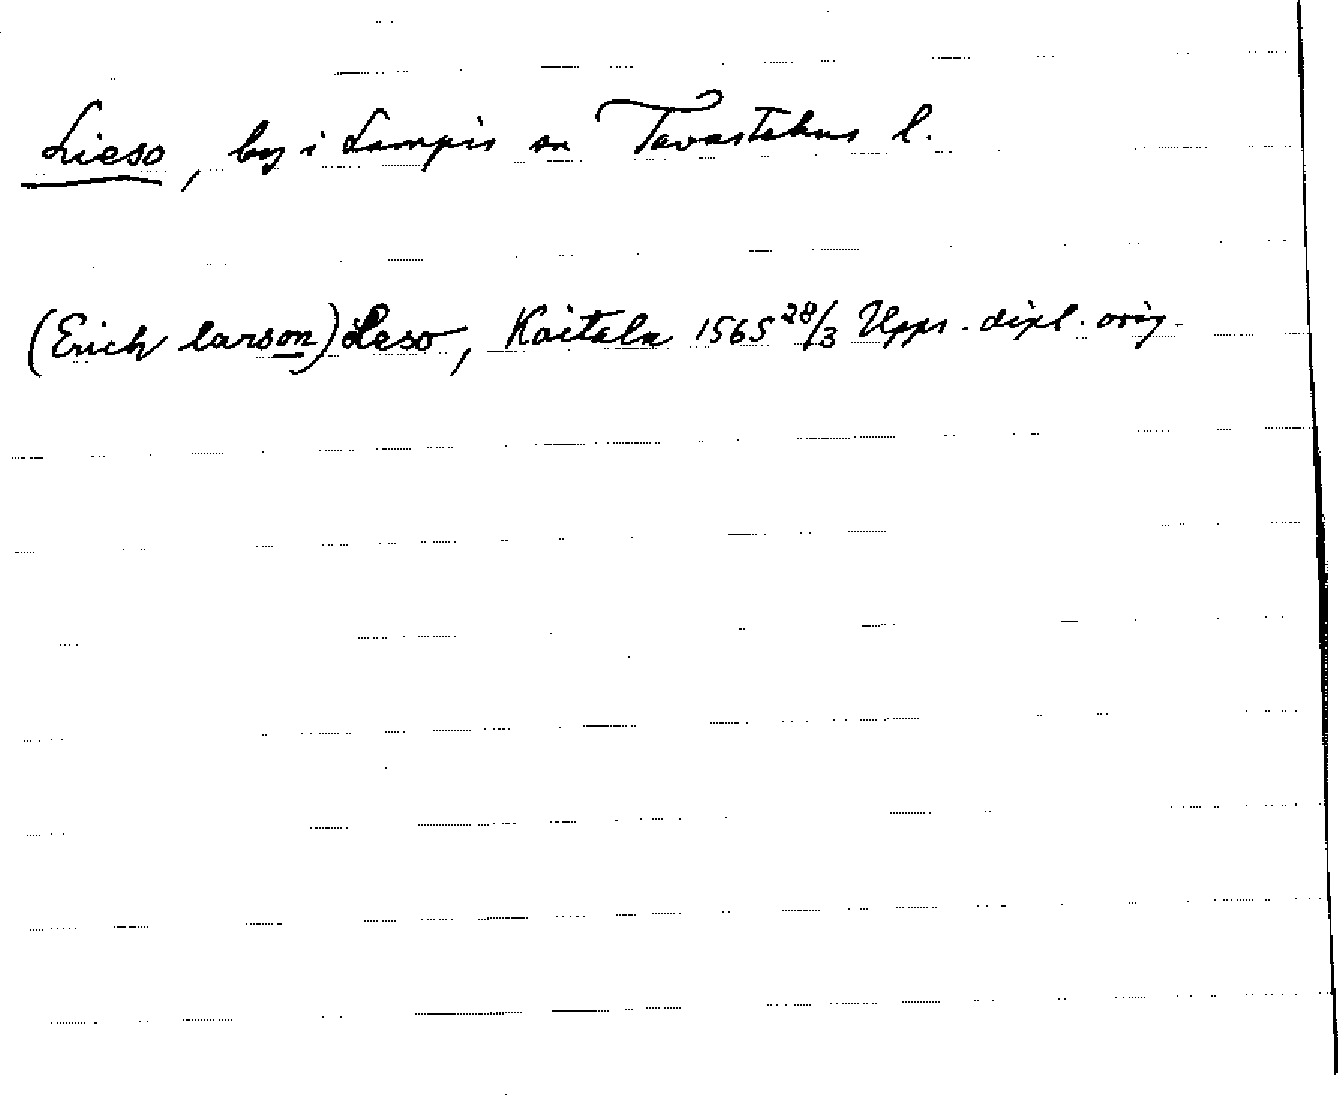 Lieso, by i Lampis sn Tavastehus l.
(Erich larson) Leso, Kaitala 1565 28/3 Upps. dipl. orig.